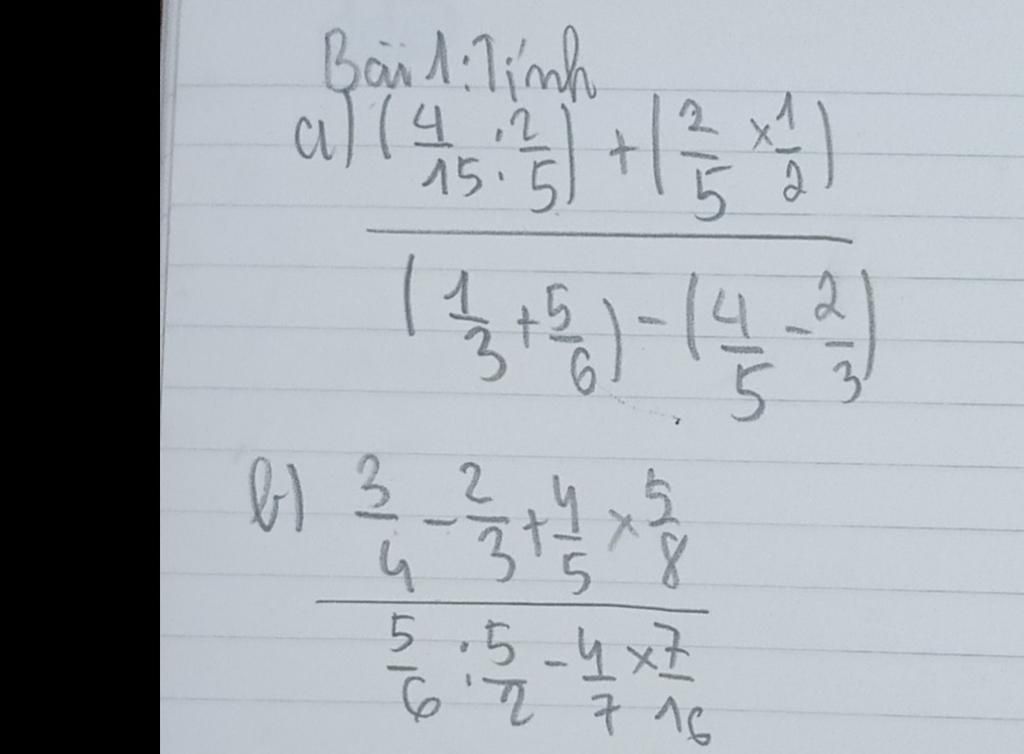 Bài 1: Tính
a) (4/15 : 2/5) + (2/5 × 1/2)
(1/3 + 5/6) - (4/5 - 2/3)
b) 3/4 - 2/3 + 4/5 × 5/8
5/6 : 5/2 - 4/7 × 7/16